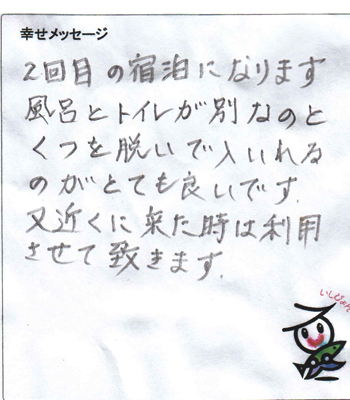 幸せメッセージ
2回目の宿泊になります
風呂とトイレが別なのと
くつを脱いで入いれる
のがとても良いです.
又近くに来た時は利用
させて致きます.
いしぴょん